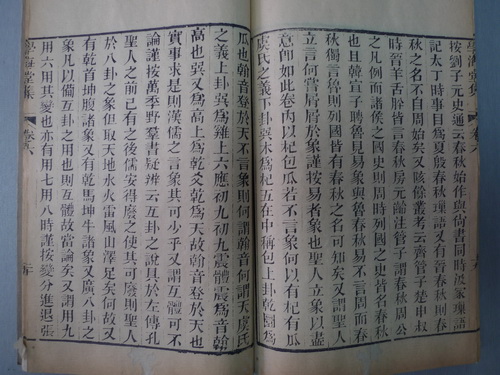 學海堂集 卷六
按劉子元史通云春秋始作與尚書同時汲冢璅語
記太丁時事目爲夏殷春秋璅語又有晉春秋則春
秋之名不自周始矣又陔餘叢考云齊管子楚申叔
時晉羊舌肸皆言春秋房元齡注管子謂春秋周公
之凡例而諸侯之國史則周時列國之史皆名春秋
也且韓宣子聘魯見易象與魯春秋易不言周而春
秋獨言魯則列國皆有春秋之名可知矣又謂聖人
立言何嘗屑屑於象謹按易者象也聖人立象以盡
意卽如此卷內以杞包瓜若不言象何以
虞氏之義下卦巽木爲杞互在中稱包上卦乾圜爲
瓜也翰音登天不言象則何謂翰音何謂天虞氏
之義上卦巽爲雞上六應初九初九震震爲音翰
高也巽又爲高上爲乾爻乾爲天故翰音登於天也
實事求是則漢儒之言象其可少乎又謂互體可不
論謹按萬季野羣書疑辨云互卦之說具於左傳孔
聖人之前已有之後儒安得廢之使其可廢則聖人
於八卦之象但取天地水火雷風山澤足矣何故又
有乾首坤腹諸象又有乾馬坤牛諸象又廣八卦之
象凡以備互卦之用也則互體故當論矣又謂用九
用六其變也亦有用七用八時謹按變分進退張
學海堂集 卷六